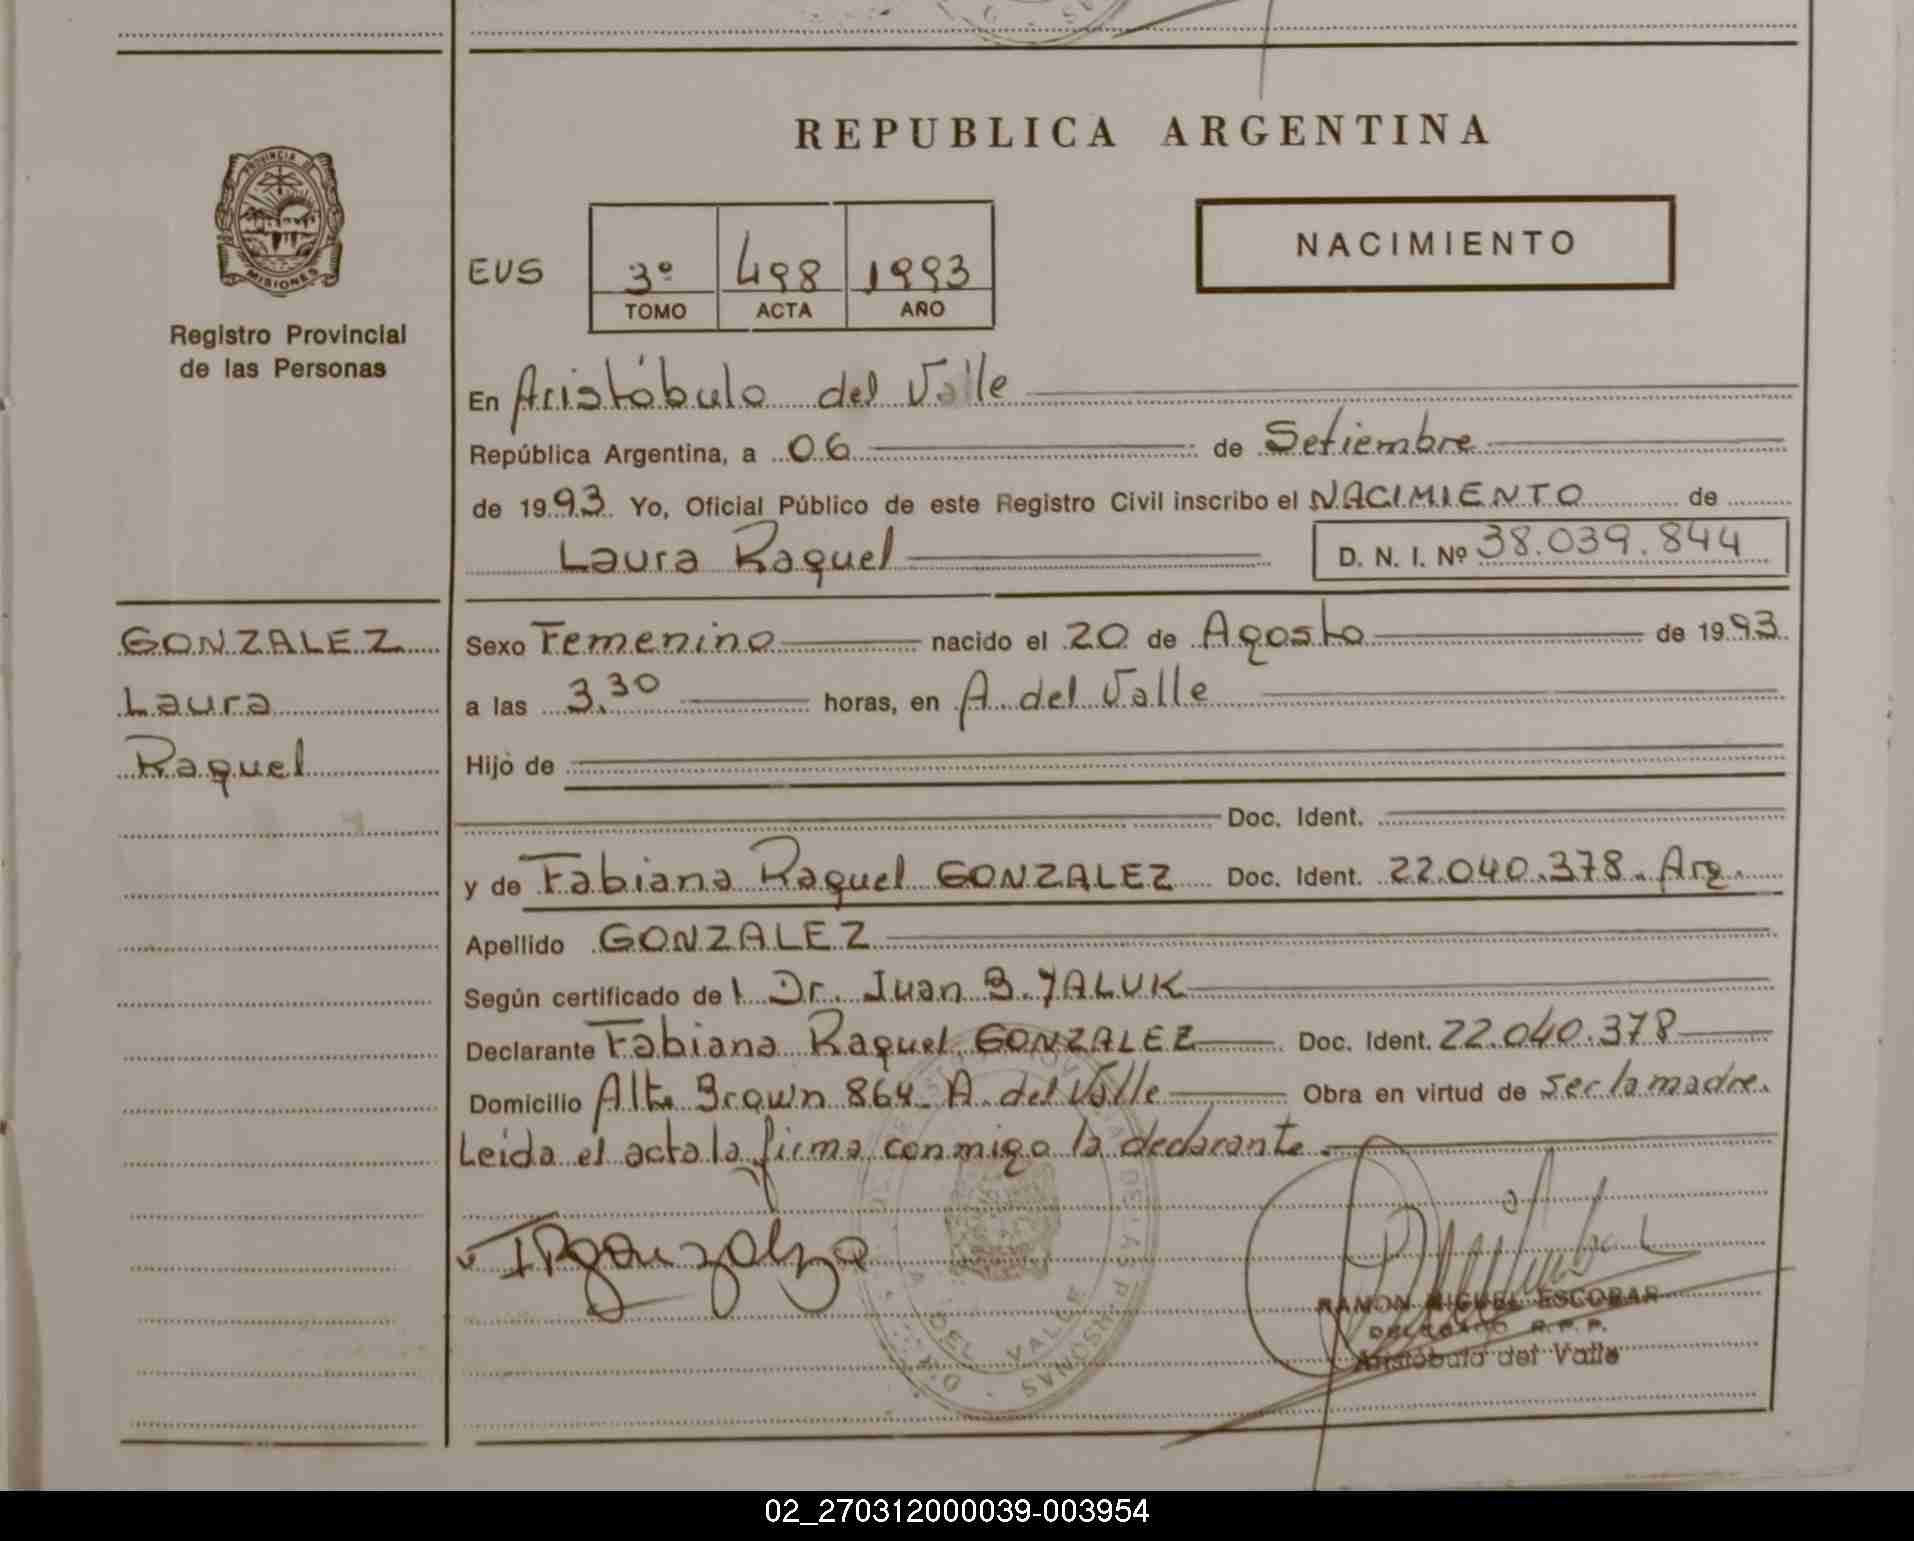 REPUBLICA ARGENTINA
PROVINCIA DE MISIONES
Registro Provincial
de las Personas
NACIMIENTO
EUS 3º 498 1993
TOMO ACTA AÑO
En Aristóbulo del Valle
República Argentina, a 06 de Setiembre
de 1993 Yo, Oficial Público de este Registro Civil inscribo el NACIMIENTO de
Laura Raquel D. N. I. Nº 38.039.844
GONZALEZ
Laura
Raquel
Sexo Femenino nacido el 20 de Agosto de 1993
a las 3.30 horas, en A. del Valle
Hijo de
Doc. Ident.
y de Fabiana Raquel GONZALEZ Doc. Ident. 22.040.378. Arg.
Apellido GONZALEZ
Según certificado del Dr. Juan B. YALUK
Declarante Fabiana Raquel GONZALEZ Doc. Ident. 22.040.378
Domicilio Alte Brown 864 A. del Valle Obra en virtud de ser la madre.
Leída el acta la firma conmigo la declarante.
RAMON MIGUEL ESCOBAR
DELEGADO R.P.P.
Aristóbulo del Valle
A. DEL VALLE
02_270312000039-003954